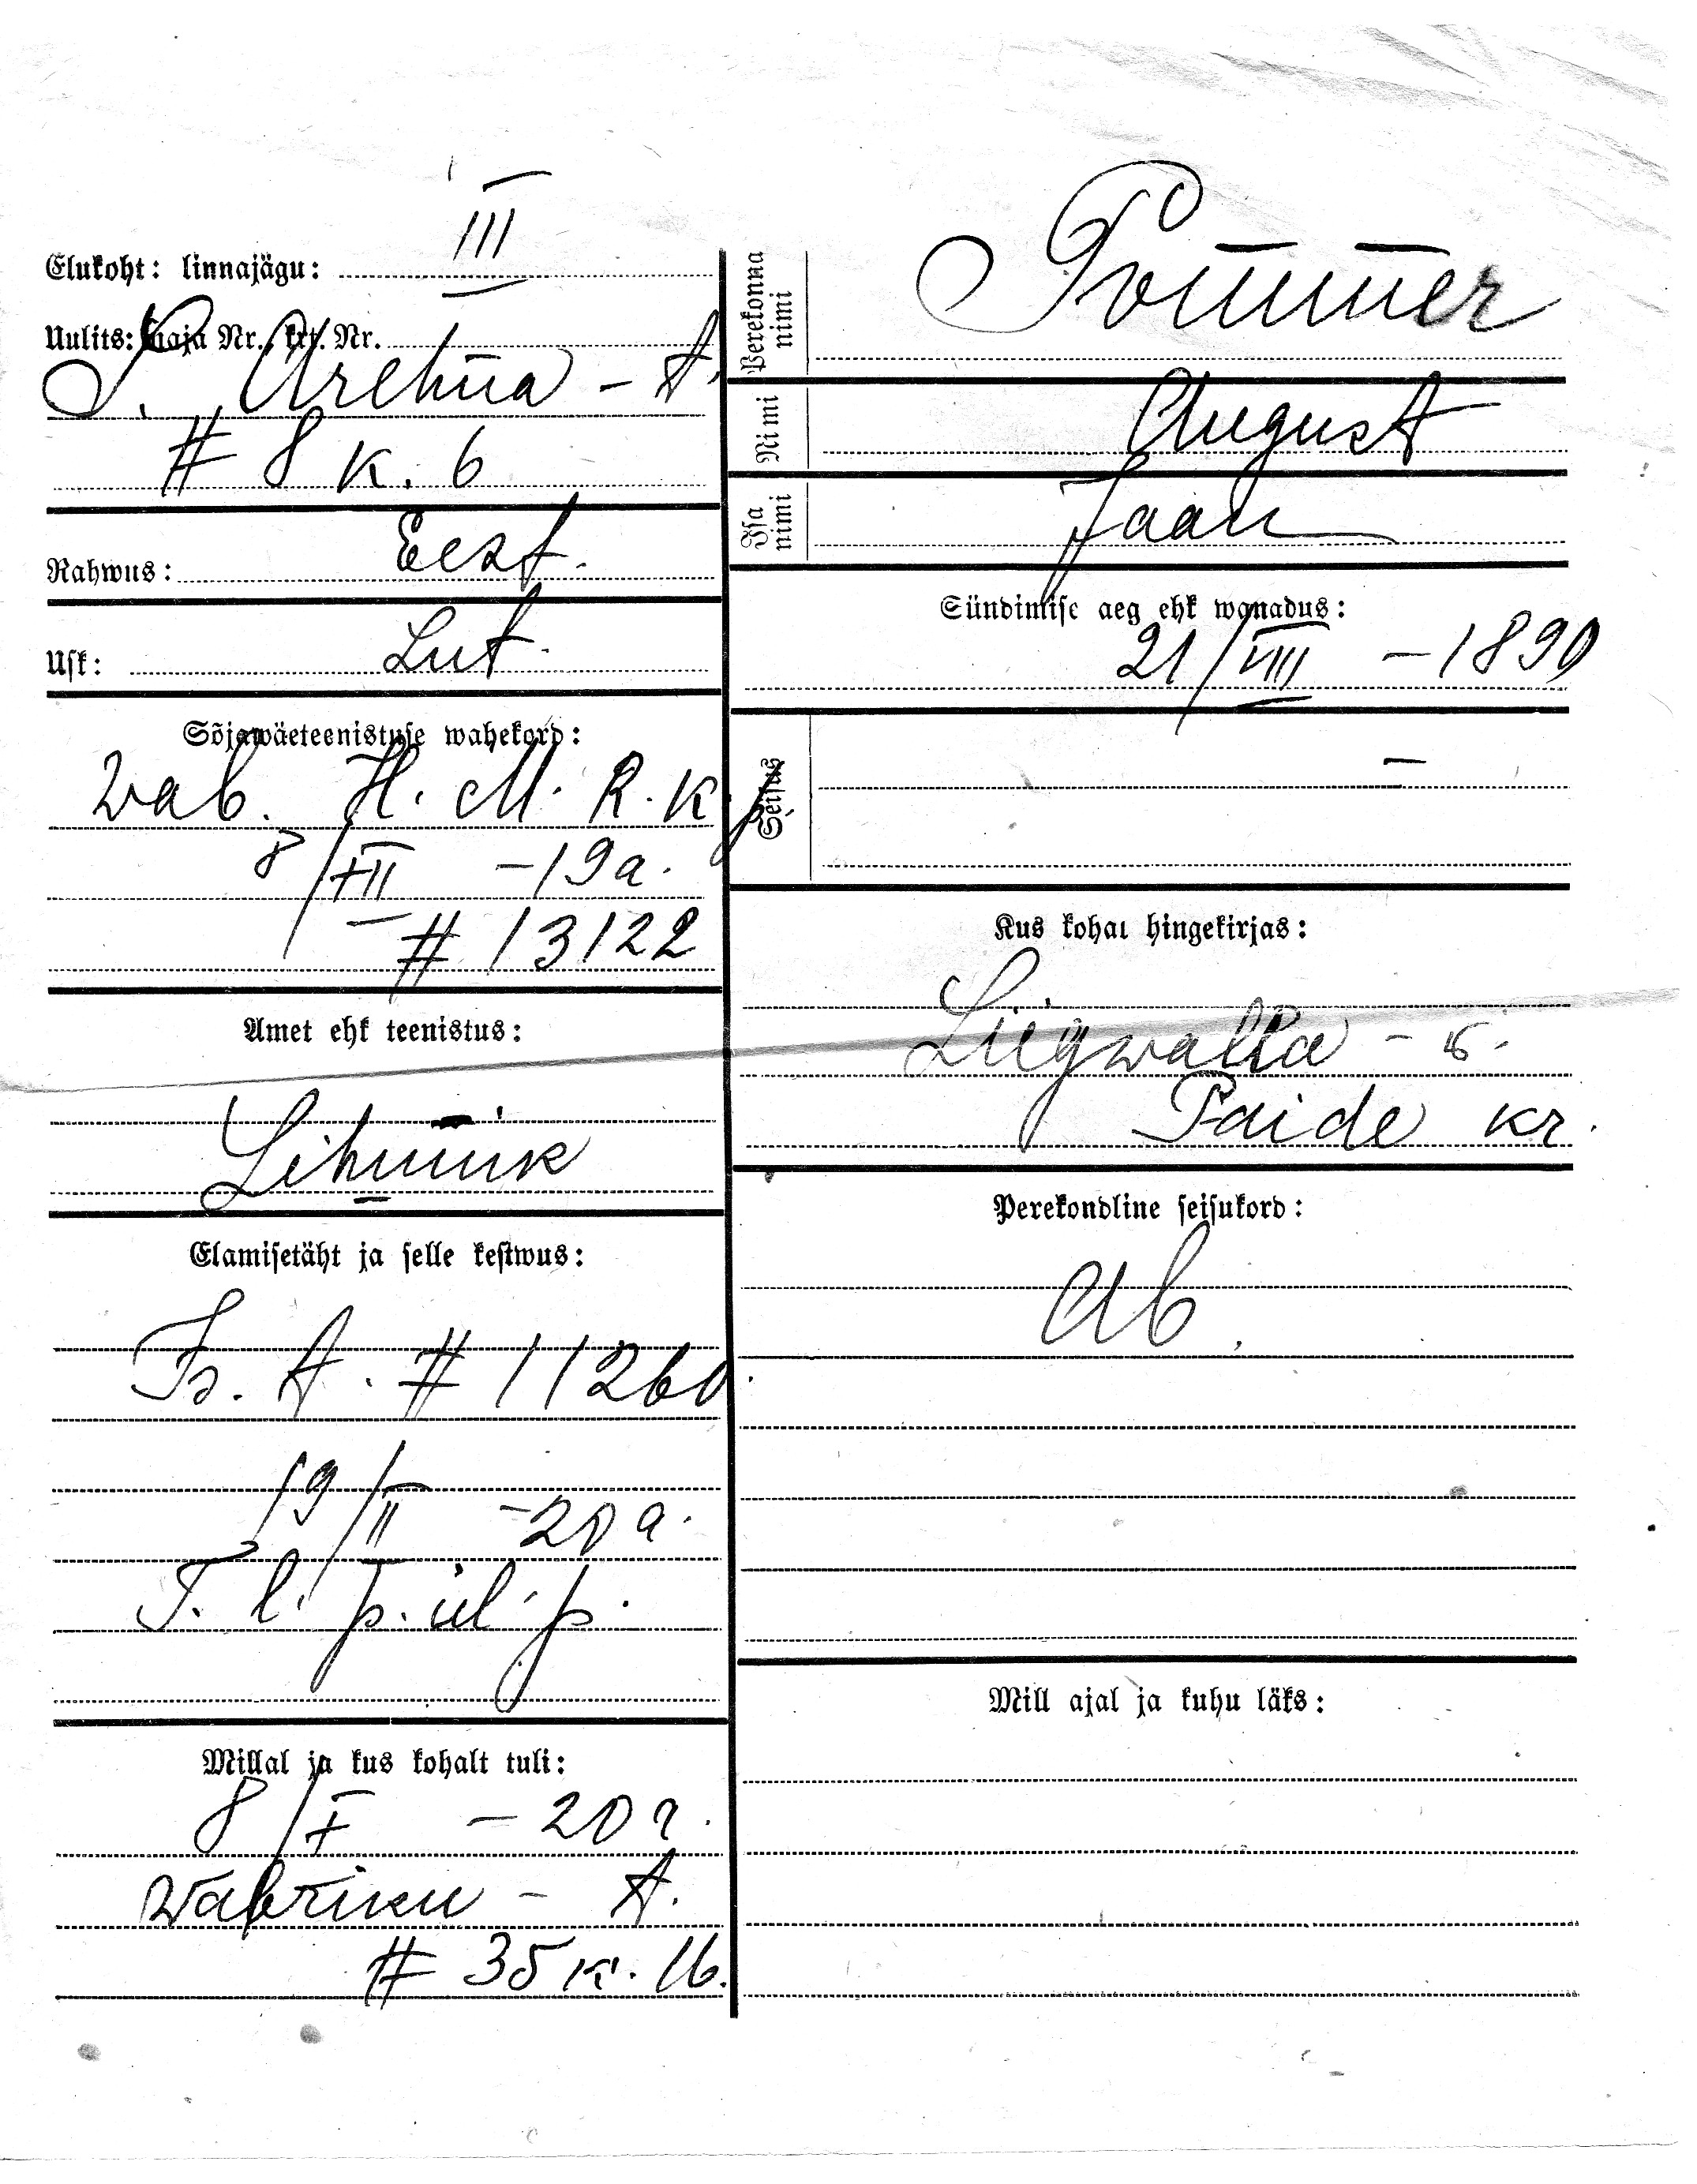 Elukoht: linnajägu: III
Uulits: maja Nr., krt. Nr.
P. Arehna - t.
# 8 k. 6
Rahwus: Eest.
Usk: Lut.
Sõjawäeteenistuse wahekord:
Wab. H. M. R. K. p
8/XII - 19 a.
# 13122
Amet ehk teenistus:
Lihunik
Elamisetäht ja selle kestwus:
Is. t. # 11260.
19/II - 20 a.
T. l. p. ül. p.
Millal ja kus kohalt tuli:
8/X - 20 a.
Wabriku - t.
# 35 k. 16.
Perekonna nimi Pommer
Nimi August
Isa nimi Jaan
Sündimise aeg ehk wanadus:
21/VIII - 1890
Seisus —
Kus kohal hingekirjas:
Liigwalla - w.
Paide kr.
Perekondline seisukord:
Ab.
Mill ajal ja kuhu läks: